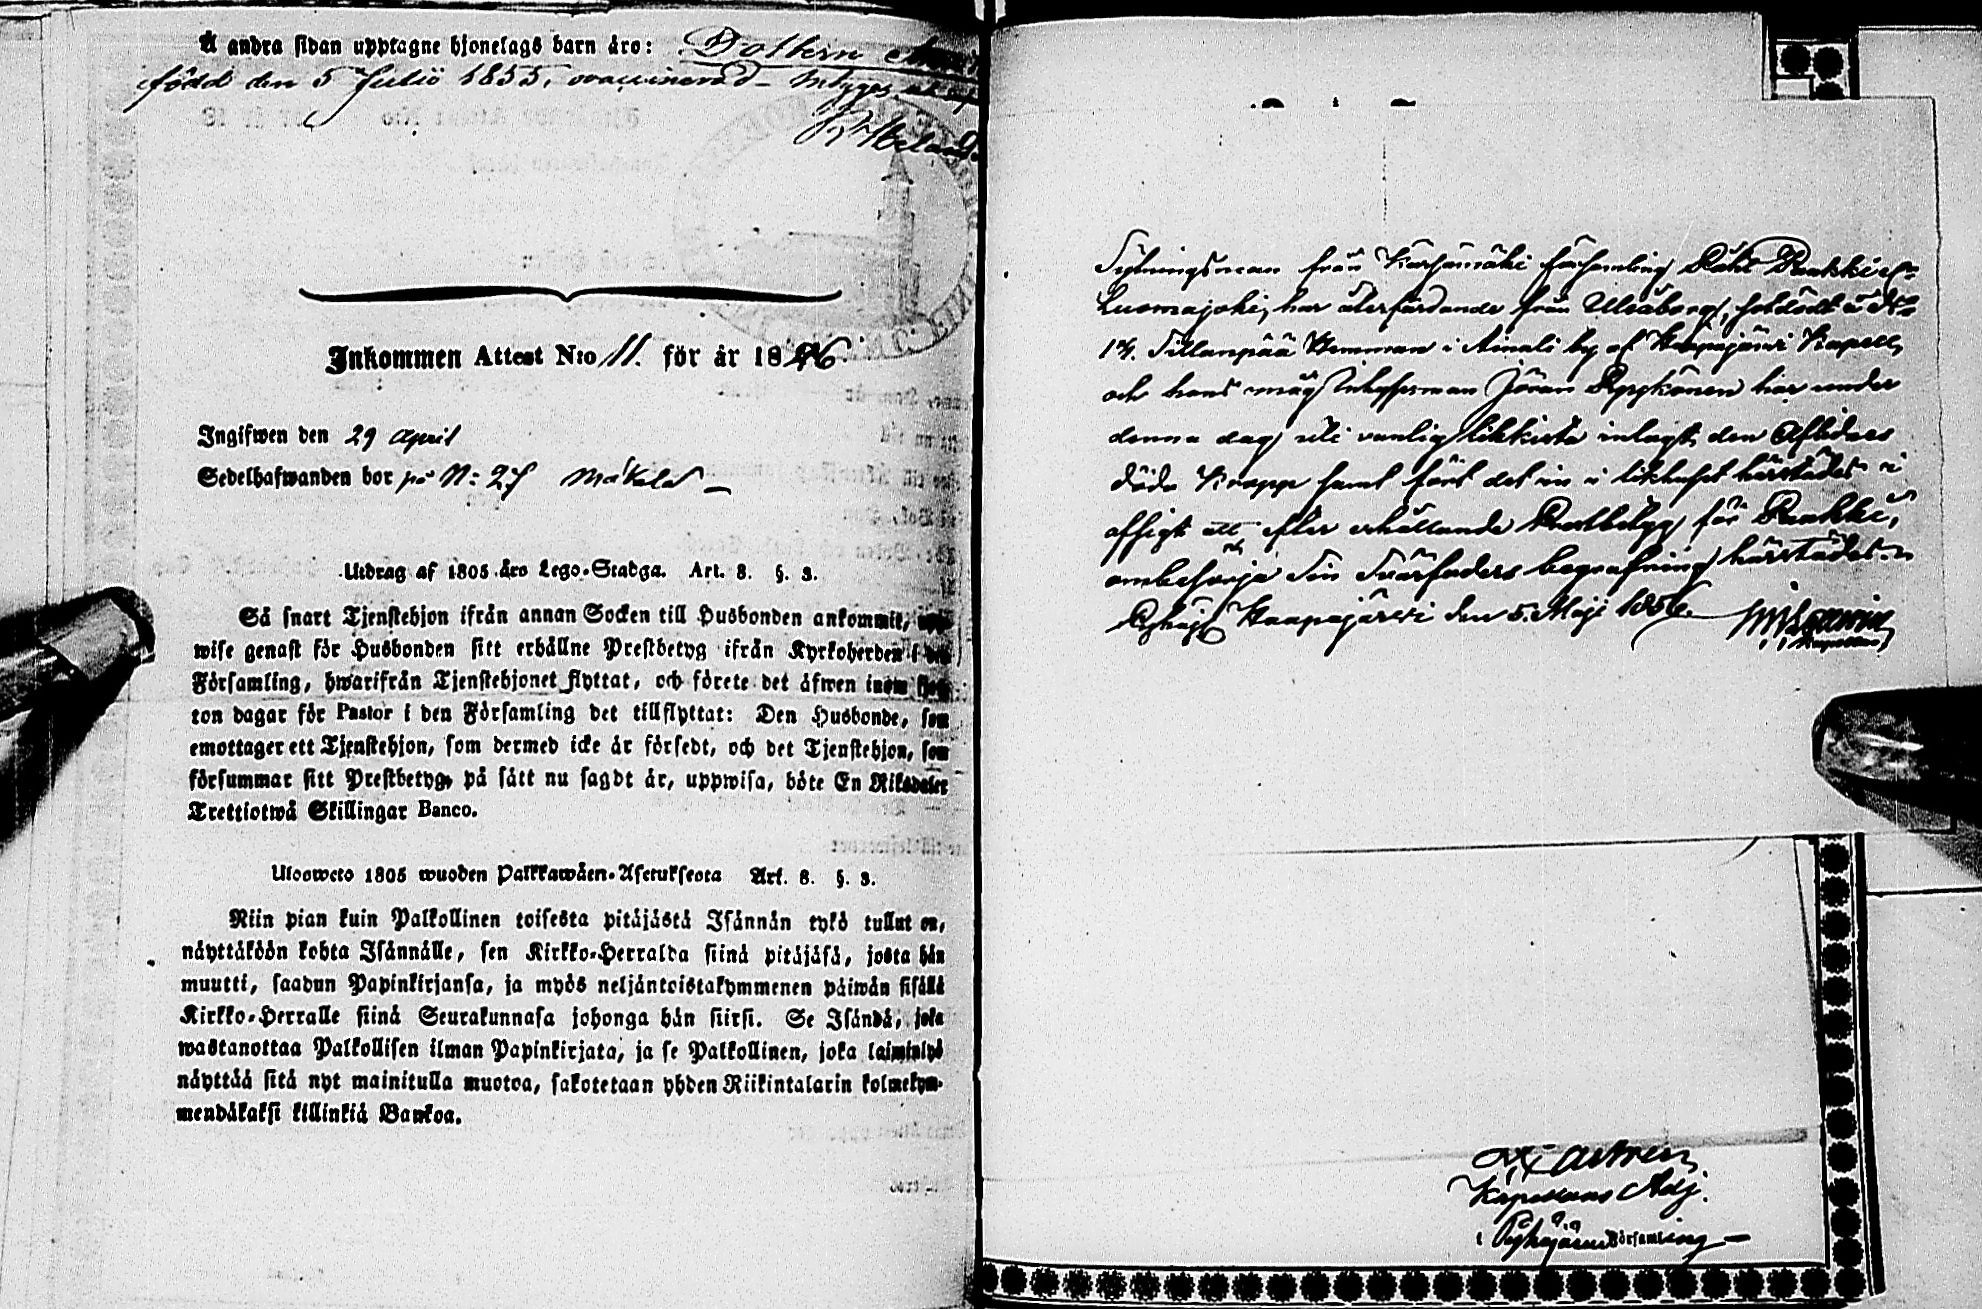 Å andra sidan upptagne hjonelags barn äro: Dottern
född den 5 Julii 1855, vaccinerad — intygas
Inkommen Attest N:o 11. för år 1856.
Ingifwen den 29 April
Sedelhafwanden bor på N: 27 Mäkelä —
Utdrag af 1805 åro Lego-Stadga. Art. 8. §. 3.
Så snart Tjenstehjon ifrån annan Socken till Husbonden ankommit,
wise genast för Husbonden sitt erhållne Prestbetyg ifrån Kyrkoherden i den
Församling, hwarifrån Tjenstehjonet flyttat, och förete det äfwen inom fjor-
ton dagar för Pastor i den Församling det tillflyttat: Den Husbonde, som
emottager ett Tjenstehjon, som dermed icke är försedt, och det Tjenstehjon, som
försummar sitt Prestbetyg, på sätt nu sagdt är, uppwisa, böte En Riksdaler
Trettiotwå Skillingar Banco.
Ulosweto 1805 wuoden Palkkawäen-Asetuksesta Art. 8. §. 3.
Niin pian kuin Palkollinen toisesta pitäjästä Isännän tykö tullut on,
näyttäköön kohta Isännälle, sen Kirkko-Herralda siinä pitäjäsä, josta hän
muutti, saadun Papinkirjansa, ja myös neljäntoistakymmenen päiwän sisällä
Kirkko-Herralle siinä Seurakunnasa johonga hän siirsi. Se Isändä, joka
wastanottaa Palkollisen ilman Papinkirjata, ja se Palkollinen, joka laiminlyö
näyttää sitä nyt mainitulla muotoa, sakotetaan yhden Riikintalarin kolmekym-
mendäkaksi killinkiä Bankoa.
Sytningsman från Kärsämäki församling
Luomajoki, har återfärdande från Uleåborg,
17. Sillanpää Hemman i Ainali by af Haapajärvi Kapell,
och hans måg Inhysesman Jöran Pyykönen har under
denna dag uti vanlig likkista inlagt den Aflidnes
döda kropp samt fört det in i likhuset härstädes i
afsigt att efter erhållande Prestbetyg för
ombesörja sin Svärfaders begrafning härstädes
Haapajärvi den 5. Maji 1856.
Castrén
Kapellans Adj.
i Pyhäjärvi Församling —